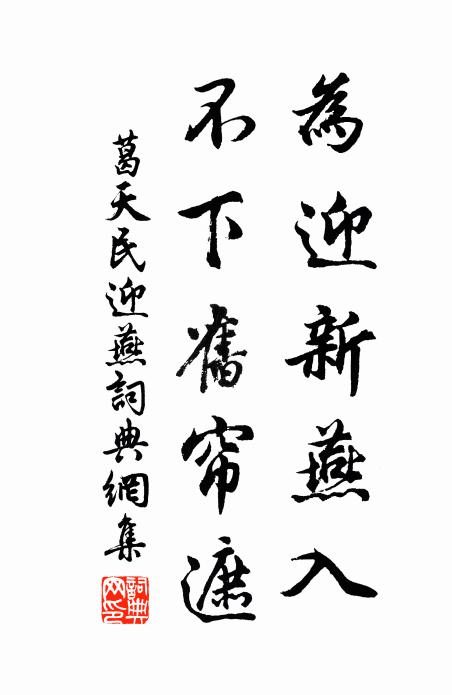 為迎新燕入
不下舊帘遮
葛天民迎燕詞典網集
詞典网印